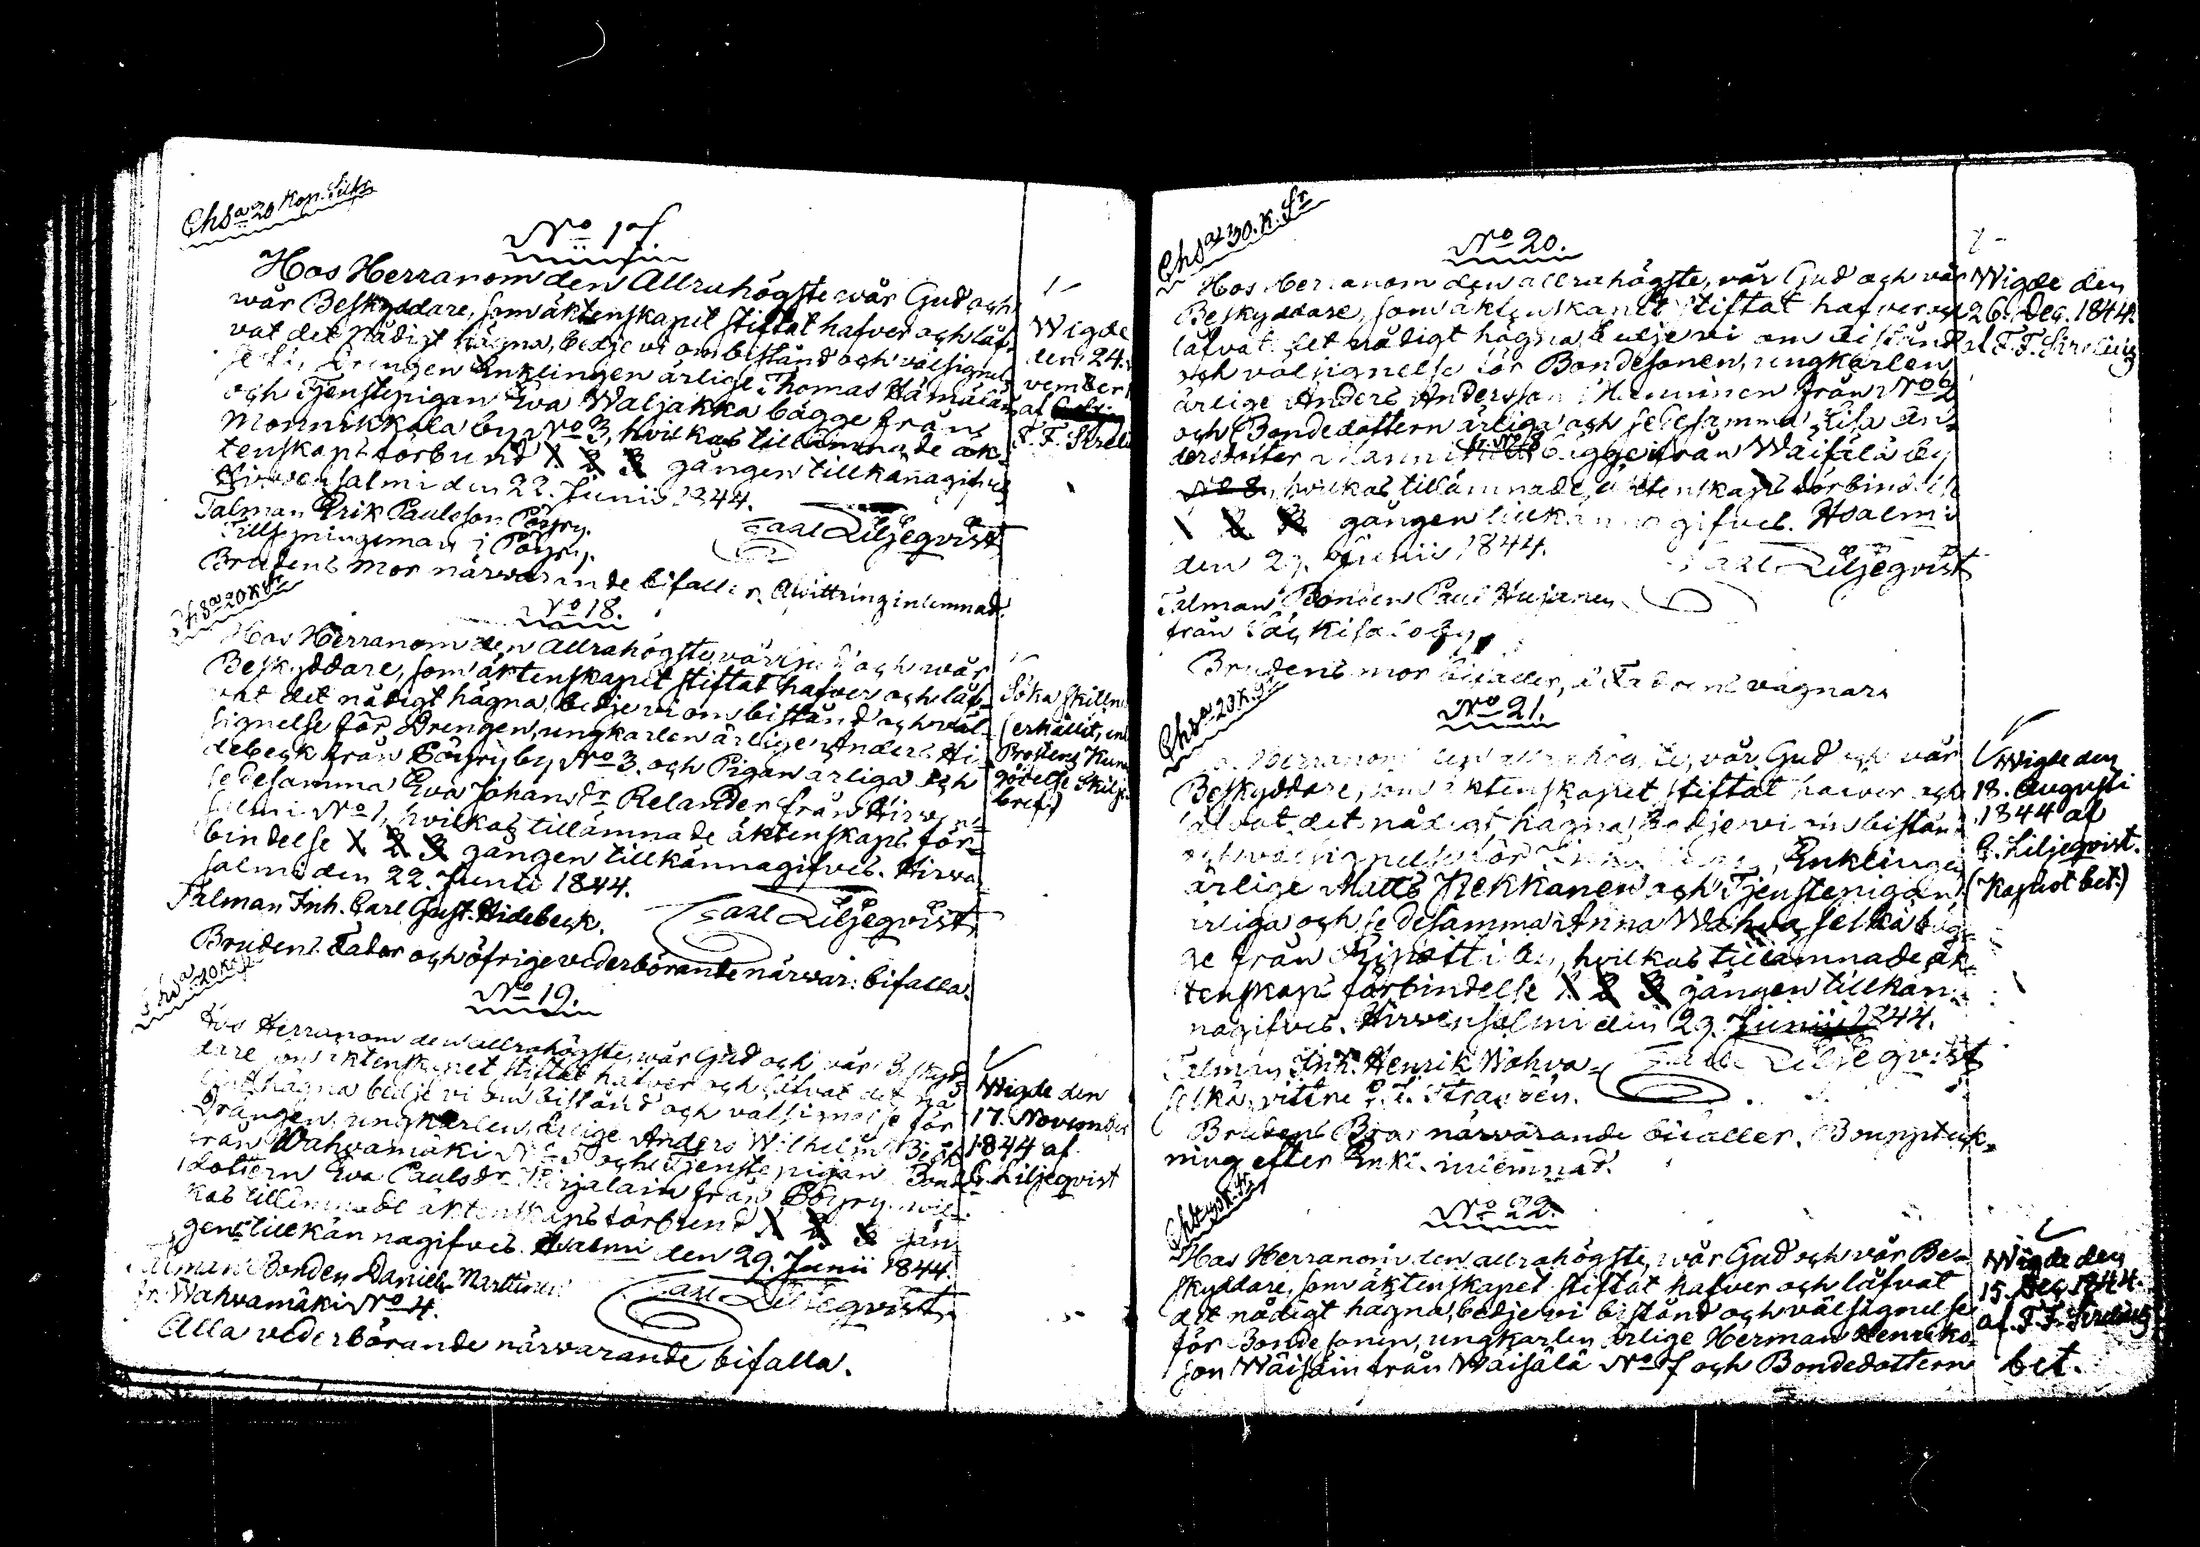 Chsa 20 Kop. Silfr
No 17.
Hos Herranom den Allrahögste wår Gud och
wår Beskyddare, som äktenskapet stiftat hafver och låf-
vat det Nådigt hägna, bedje vi om bistånd och välsignel-
se för Drengen Enklingen ärlige Thomas Hämäläin
och Tjenstepigan Eva Waljakka bägge från
Monnikkala by No 3, hvilkas tillämnade äk-
tenskaps förbund 1 2 3 gången tillkännagifves
Hirvensalmi den 22. Junii 1844.
Talman Erik Paulsson Pöyry.
Tillsyningsman i Pöyry.
Carl Liljeqvist
Brudens mor närvarande bifaller. Afvittring inlemnad.
Wigde
den 24.
vember
af
F. F. Sireli
Chsa 20 K Sr
No 18.
Hos Herranom den Allrahögste, vår Gud och wår
Beskyddare, som äktenskapet stiftat hafver och låf-
vat det nådigt hägna, bedje vi om bistånd och väl-
signelse för Drengen, ungkarlen ärlige Anders Hi-
debeck från Pöyry by No 3. och Pigan ärliga och
sedesamma Eva Johans dr Relander från Hirven-
salmi No 1, hvilkas tillämnade äktenskaps för-
bindelse 1 2 3 gången tillkännagifves. Hirven-
salmi den 22. Junii 1844.
Talman Inh. Carl Gust. Hidebeck.
Carl Liljeqvist
Brudens Fader och öfrige vederbörande närvar: bifalla.
Söka skilln
(erhållit, enl
Prostens Kun
görelse Skilje
bref)
Chsa 20 K
No 19.
Hos Herranom den allrahögste, wår Gud och vår Beskyd-
dare som äktenskapet stiftat hafver och låfvat det nå-
digt hägna bedje vi om bistånd och välsignelse för
Drängen, ungkarlen, ärlige Anders Wilhelm Beck
från Wahvamäki No 5 och Tjenstepigan Bonde
dottern Eva Pauls dr Karjalain från Pöyry, hvil-
kas tillämnade äktenskaps förbund 1 2 3 gån-
gen tillkännagifves. Hsalmi den 29. Junii 1844.
Talman Bonden Daniel Marttinen
fr. Wahvamäki No 4.
Carl Liljeqvist
Alla vederbörande närvarande bifalla.
Wigde den
17. November
1844 af
C. Liljeqvist
Chsa 30. K. Sr
No 20.
Hos Herranom den allrahögste, vår Gud och vår
Beskyddare, som äktenskapet stiftat hafver och
låfvat det nådigt hägna, bedje vi om bistånd
och välsignelse för Bondesonen, ungkarlen
ärlige Anders Andersson Manninen från No 2
och Bondedottern ärliga och sedesamma Lisa An-
dersdotter bägge från Wäisälä by
No 8, hvilkas tillämnade äktenskaps förbindelse
1 2 3 gången tillkännagifves. Hsalmi
den 29. Junii 1844.
Carl Liljeqvist
Talman Bonden Paul
från
Brudens mor bifaller, å Fadrens vägnar
Wigde den
26. Dec. 1844.
af F. F. Sirelius
Chsa 20 K. Sr
No 21.
Hos Herranom den allrahögste, vår Gud och vår
Beskyddare, som äktenskapet stiftat hafver och
låfvat det nådigt hägna, bedje vi om bistånd
och välsignelse för Enklingen
ärlige Matts Hekkanen och Tjenstepigan
ärliga och sedesamma Anna Wahvaselkä bäg-
ge från Ripatti by, hvilkas tillämnade äk-
tenskaps förbindelse 1 2 3 gången tillkän-
nagifves. Hirvensalmi den 29. Junii 1844.
Talman Inh. Henrik Wahva-
selkä, vittne Strandén.
Carl Liljeqvist
Brudens Bror närvarande bifaller. Boupptek-
ning efter Enkl. inlemnad.
Wigde den
18. Augusti
1844 af
C. Liljeqvist.
(Kapust bet.)
No 22.
Hos Herranom den allrahögste, wår Gud och vår Be-
skyddare, som äktenskapet stiftat hafver och låfvat
det nådigt hägna, bedje vi bistånd och välsignelse
för Bondesonen, ungkarlen ärlige Herman Henriks-
son Wäisäin från Wäisälä No 7 och Bondedottern
Wigde den
15. Dec. 1844.
af F. F. Sirelius
bet.